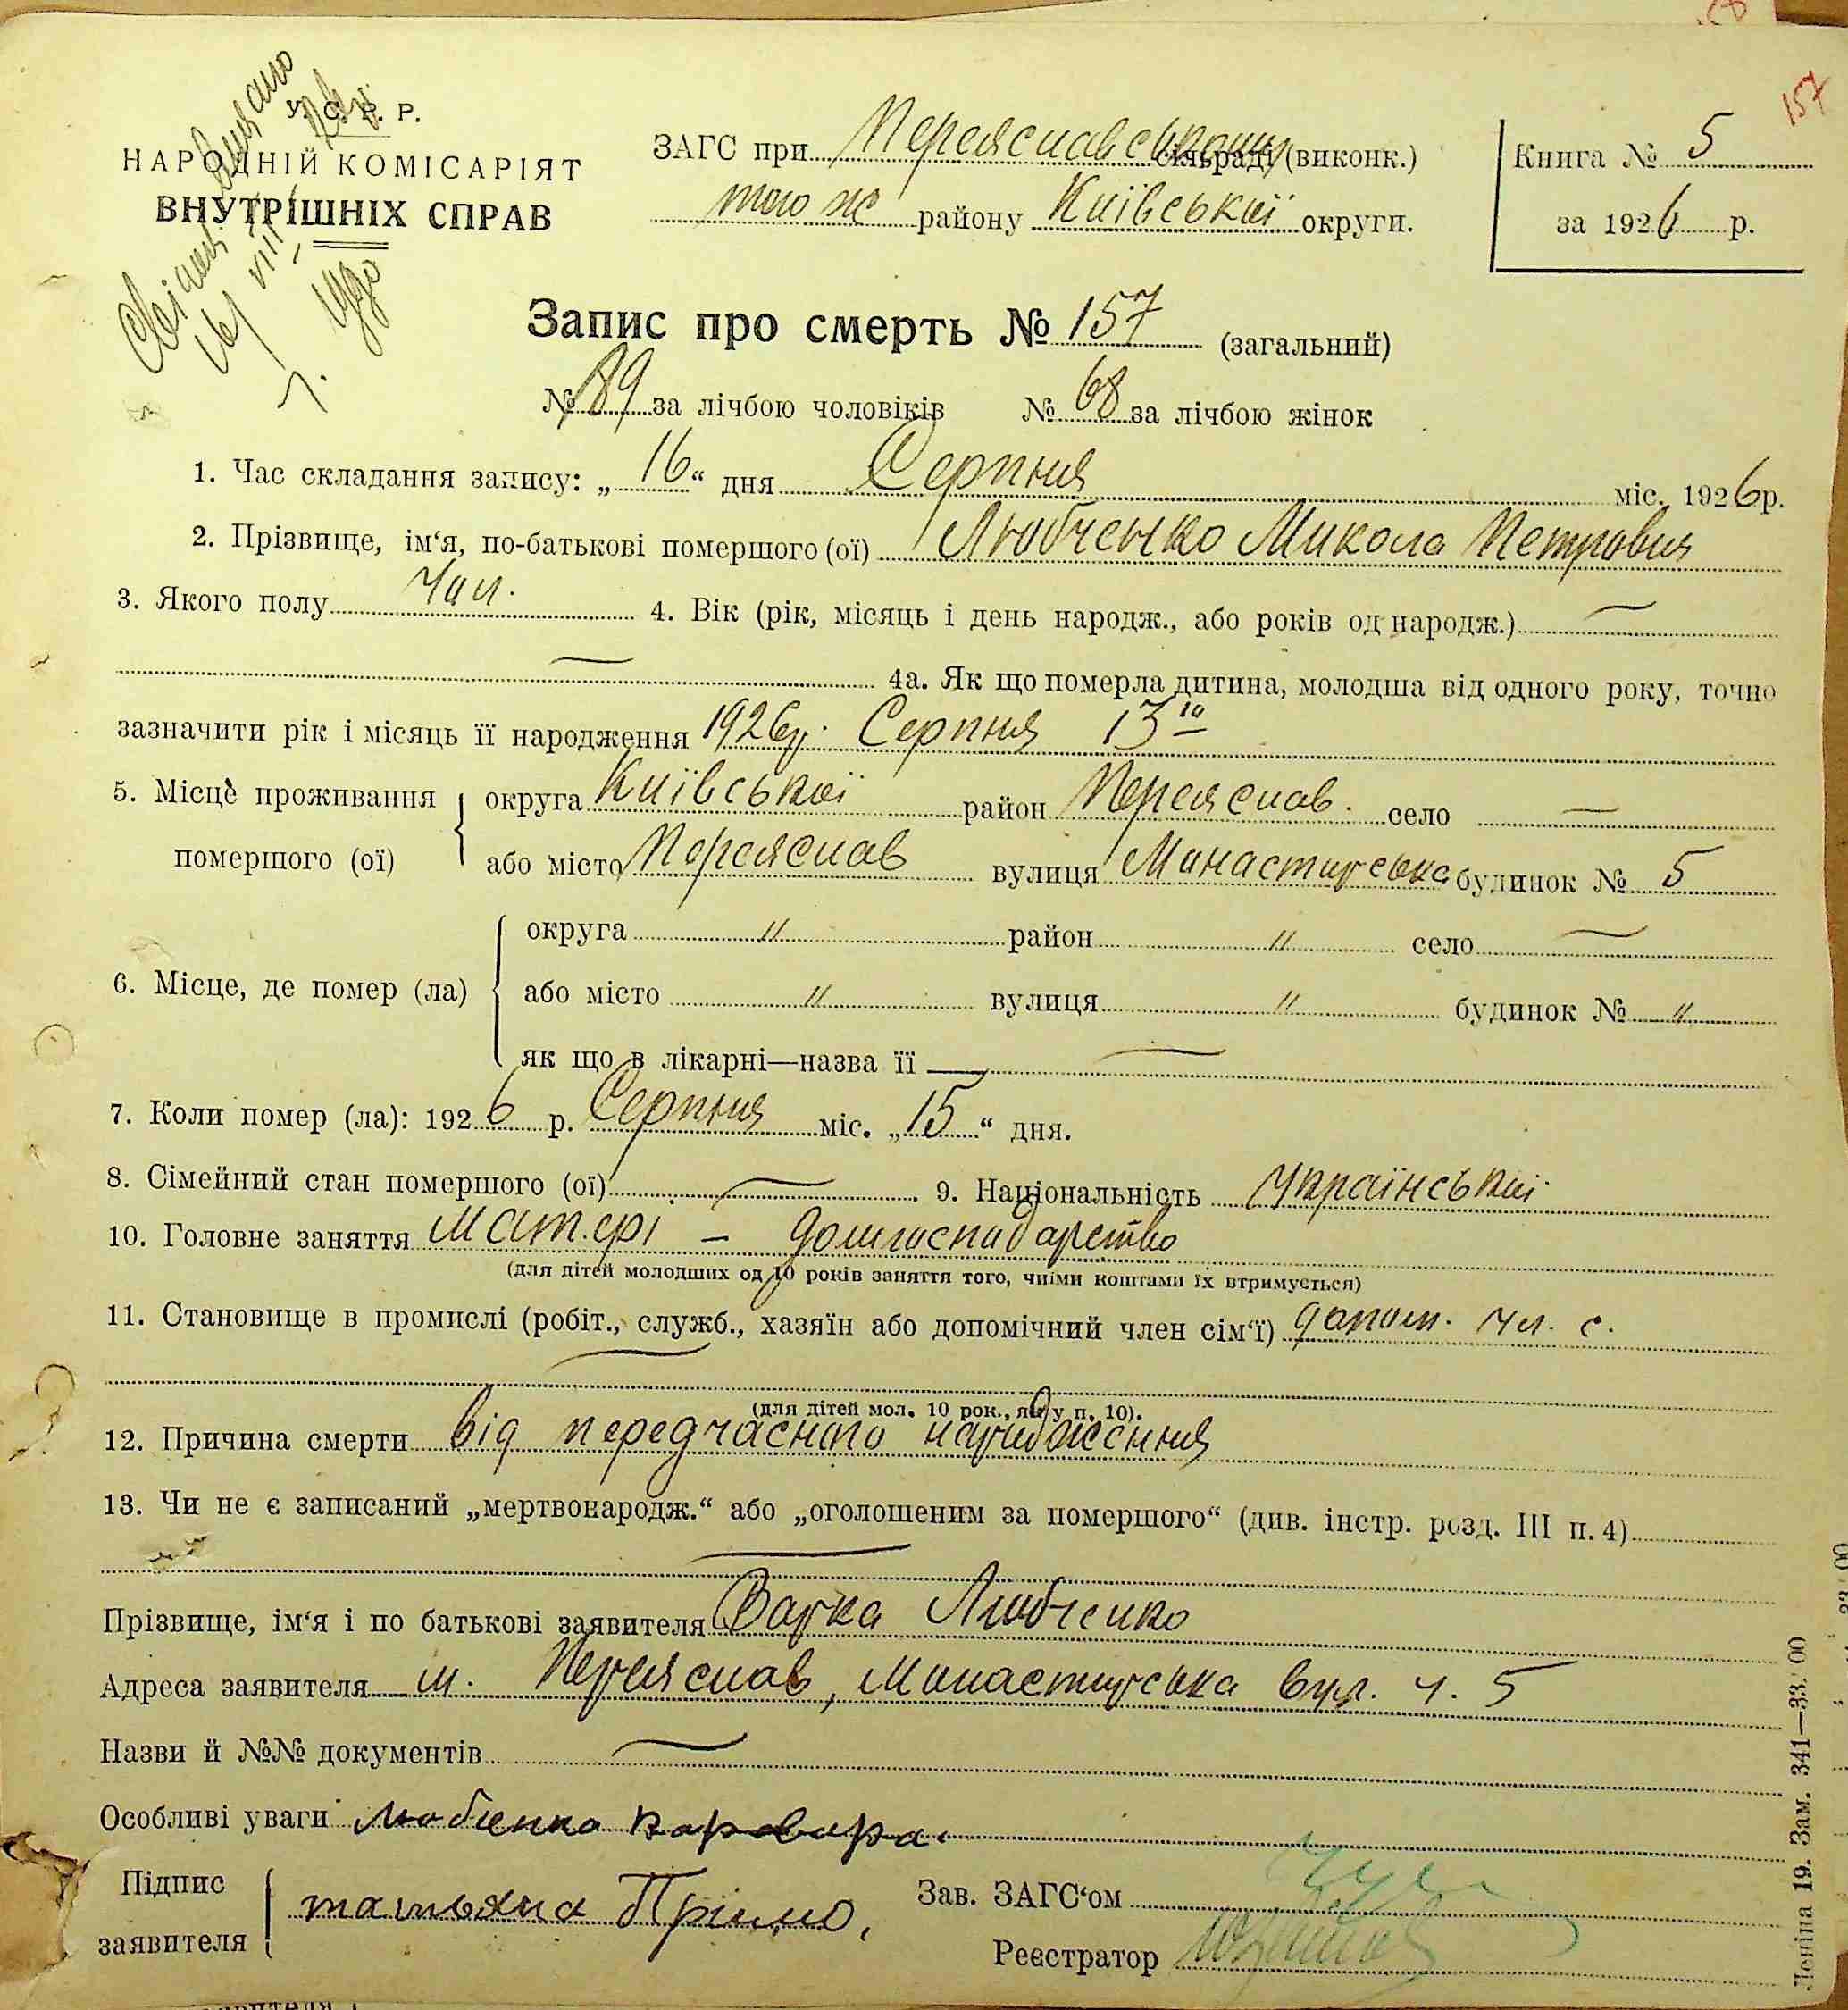 157
У. С. Р. Р.
НАРОДНІЙ КОМІСАРІЯТ
ВНУТРІШНІХ СПРАВ
видано
16/VIII
ЗАГС при Переяславському сільраді (виконк.)
того ж району Київської округи.
Книга № 5
за 1926 р.
Запис про смерть № 157 (загальний)
№ 89 за лічбою чоловіків № 68 за лічбою жінок
1. Час складання запису: „16“ дня Серпня міс. 1926 р.
2. Прізвище, ім‘я, по-батькові помершого (ої) Любченко Микола Петрович
3. Якого полу Чол. 4. Вік (рік, місяць і день народж., або років од народж.) —
— 4а. Як що померла дитина, молодша від одного року, точно
зазначити рік і місяць її народження 1926 р. Серпня 13го
5. Місце проживання помершого (ої) округа Київської район Переяслав. село —
або місто Переяслав вулиця Монастирська будинок № 5
6. Місце, де помер (ла) округа " район " село —
або місто " вулиця " будинок № "
як що в лікарні—назва її —
7. Коли помер (ла): 1926 р. Серпня міс. „15“ дня.
8. Сімейний стан помершого (ої) — 9. Національність Української
10. Головне заняття Матері – домгосподарство
(для дітей молодших од 10 років заняття того, чиїми коштами їх втримується)
11. Становище в промислі (робіт., служб., хазяїн або допомічний член сім‘ї) допом. чл. с.
—
(для дітей мол. 10 рок., як у п. 10).
12. Причина смерти від передчасного народження
13. Чи не є записаний „мертвонародж.“ або „оголошеним за помершого“ (див. інстр. розд. III п. 4)
—
Прізвище, ім‘я і по батькові заявителя Варка Любченко
Адреса заявителя м. Переяслав, Монастирська вул. ч. 5
Назви й №№ документів —
Особливі уваги Любченко Варвара.
Підпис заявителя татьяна
Зав. ЗАГС‘ом
Реєстратор
Леніна 19. Зам. 341—33.'00